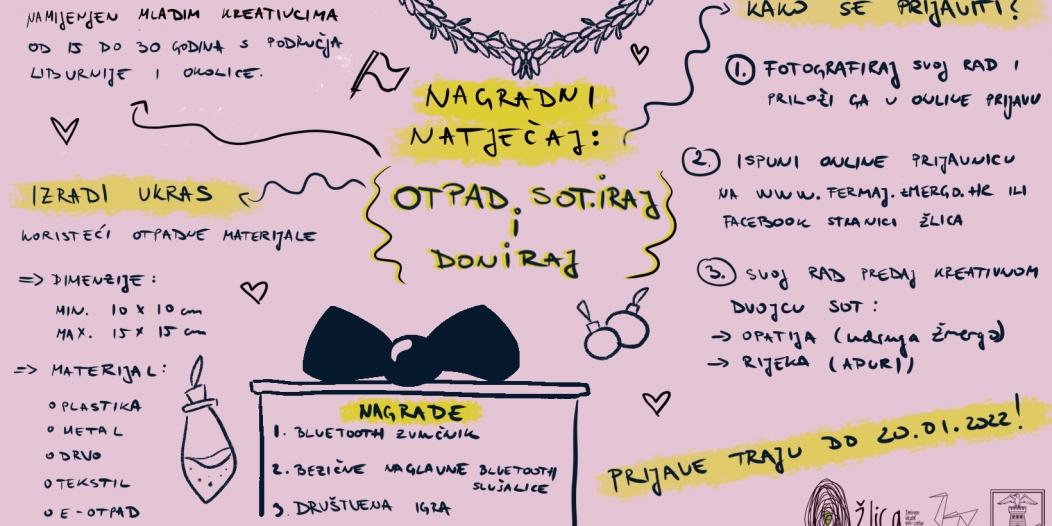 NAMIJENJEN MLADIM KREATIVCIMA
OD 15 DO 30 GODINA S PODRUČJA
LIBURNIJE I OKOLICE.
NAGRADNI
NATJEČAJ:
OTPAD. SOT.IRAJ
I
DONIRAJ
IZRADI UKRAS
KORISTEĆI OTPADNE MATERIJALE
=> DIMENZIJE:
MIN. 10 x 10 cm
MAX. 15 x 15 cm
=> MATERIJAL:
o PLASTIKA
o METAL
o DRVO
o TEKSTIL
o E-OTPAD
NAGRADE
1. BLUETOOTH ZVUČNIK
2. BEZIČNE NAGLAVNE BLUETOOTH
SLUŠALICE
3. DRUŠTVENA IGRA
KAKO SE PRIJAVITI?
1. FOTOGRAFIRAJ SVOJ RAD I
PRILOŽI GA U ONLINE PRIJAVU
2. ISPUNI ONLINE PRIJAVNICU
NA WWW.FERMAJ.ZMERGO.HR ILI
FACEBOOK STRANICI ŽLICA
3. SVOJ RAD PREDAJ KREATIVNOM
DVOJCU SOT:
-> OPATIJA (udruga Žmergo)
-> RIJEKA (APURI)
PRIJAVE TRAJU DO 20.01.2022!
žlica